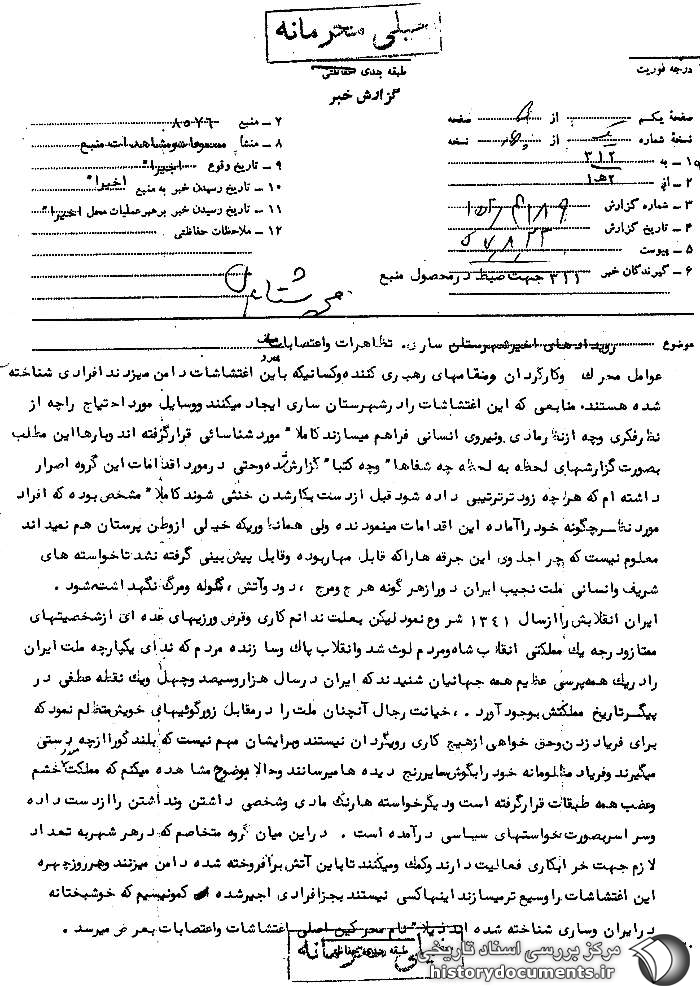 خیلی محرمانه
طبقه بندی حفاظتی
درجه فوریت
گزارش خبر
صفحه یکم از صفحه
نسخه شماره از نسخه
۱ ـ به ۳۱۲
۲ ـ از ۲هـ۱
۳ ـ شماره گزارش
۴ ـ تاریخ گزارش
۵ ـ پیوست
۶ ـ گیرندگان خبر ۳۱۱ جهت ضبط در محصول منبع
۷ ـ منبع ۸۵۷۶
۸ ـ منشأ مسموعات و مشاهدات منبع
۹ ـ تاریخ وقوع اخیرا"
۱۰ ـ تاریخ رسیدن خبر به منبع اخیرا"
۱۱ ـ تاریخ رسیدن خبر برهبر عملیات محل اخیرا"
۱۲ ـ ملاحظات حفاظتی
موضوع رویدادهای اخیر شهرستان ساری. تظاهرات واعتصابات
عوامل محرك وکارگردان ومقامهای رهبری کننده وکسانیکه باین اغتشاشات دامن میزدند افرادی شناخته
شده هستند، منابعی که این اغتشاشات رادرشهرستان ساری ایجاد میکنند ووسایل مورد احتیاج راچه از
نظرفکری وچه ازنظرمادی ونیروی انسانی فراهم میسازند کاملا" مورد شناسائی قرارگرفته اند وبارهااین مطلب
بصورت گزارشهای لحظه به لحظه چه شفاها" وچه کتبا" گزارش شده وحتی درمورد اقدامات این گروه اصرار
داشته ام که هرچه زودترترتیبی داده شود قبل ازدست بکارشدن خنثی شوند کاملا" مشخص بوده که افراد
مورد نظرسرچگونه خود راآماده این اقدامات مینمودند ولی همانطوریکه خیلی ازوطن پرستان هم نمیداند
معلوم نیست که چراجلوی این جرقه هاراکه قابل مهاربوده وقابل پیش بینی گرفته نشد تاخواسته های
شریف وانسانی ملت نجیب ایران دورازهرگونه هرج ومرج ، دود وآتش ، گلوله ومرگ نگهداشته شود .
ایران انقلابش راازسال ۱۳۴۱ شروع نمود لیکن بعلت ندانم کاری وغرض ورزیهای عده ای ازشخصیتهای
ممتازودرجه یك مملکتی انقلاب شاه ومردم لوث شد وانقلاب پاك وسازنده مردم که ندای یکپارچه ملت ایران
رادریك همه پرسی عظیم همه جهانیان شنیدند که ایران درسال هزاروسیصد وچهل ویك نقطه عطفی در
پیگرتاریخ مملکتش بوجود آورد . ، خیانت رجال آنچنان ملت را درمقابل زورگوئیهای خویش متظلم نمود که
برای فریاد زدن وحق خواهی ازهیچ کاری رویگردان نیستند وبرایشان مهم نیست که بلند گوراازچه دستی
میگیرند وفریاد مظلومانه خود رابگوش سایررنج دیده ها میرسانند وحالا بوضوح مشاهده میکنم که مملکت مورد خشم
وغضب همه طبقات قرارگرفته است ودیگرخواسته هارنگ مادی وشخصی داشتن ونداشتن راازدست داده
وسراسربصورت خواستهای سیاسی درآمده است . دراین میان گروه متخاصم که درهر شهربه تعداد
لازم جهت خرابکاری فعالیت دارند وکمك ومیکنند تاباین آتش برافروخته شده دامن میزنند وهرروزچهره
این اغتشاشات راوسیع ترمیسازند اینهاکسی نیستند بجزافرادی اجیرشده کمونیسم که خوشبختانه
درایران وساری شناخته شده اند ذیلا" نام محرکین اصلی اغتشاشات واعتصابات بعرض میرسد .
طبقه بندی حفاظتی
خیلی محرمانه
مرکز بررسی اسناد تاریخی
historydocuments.ir